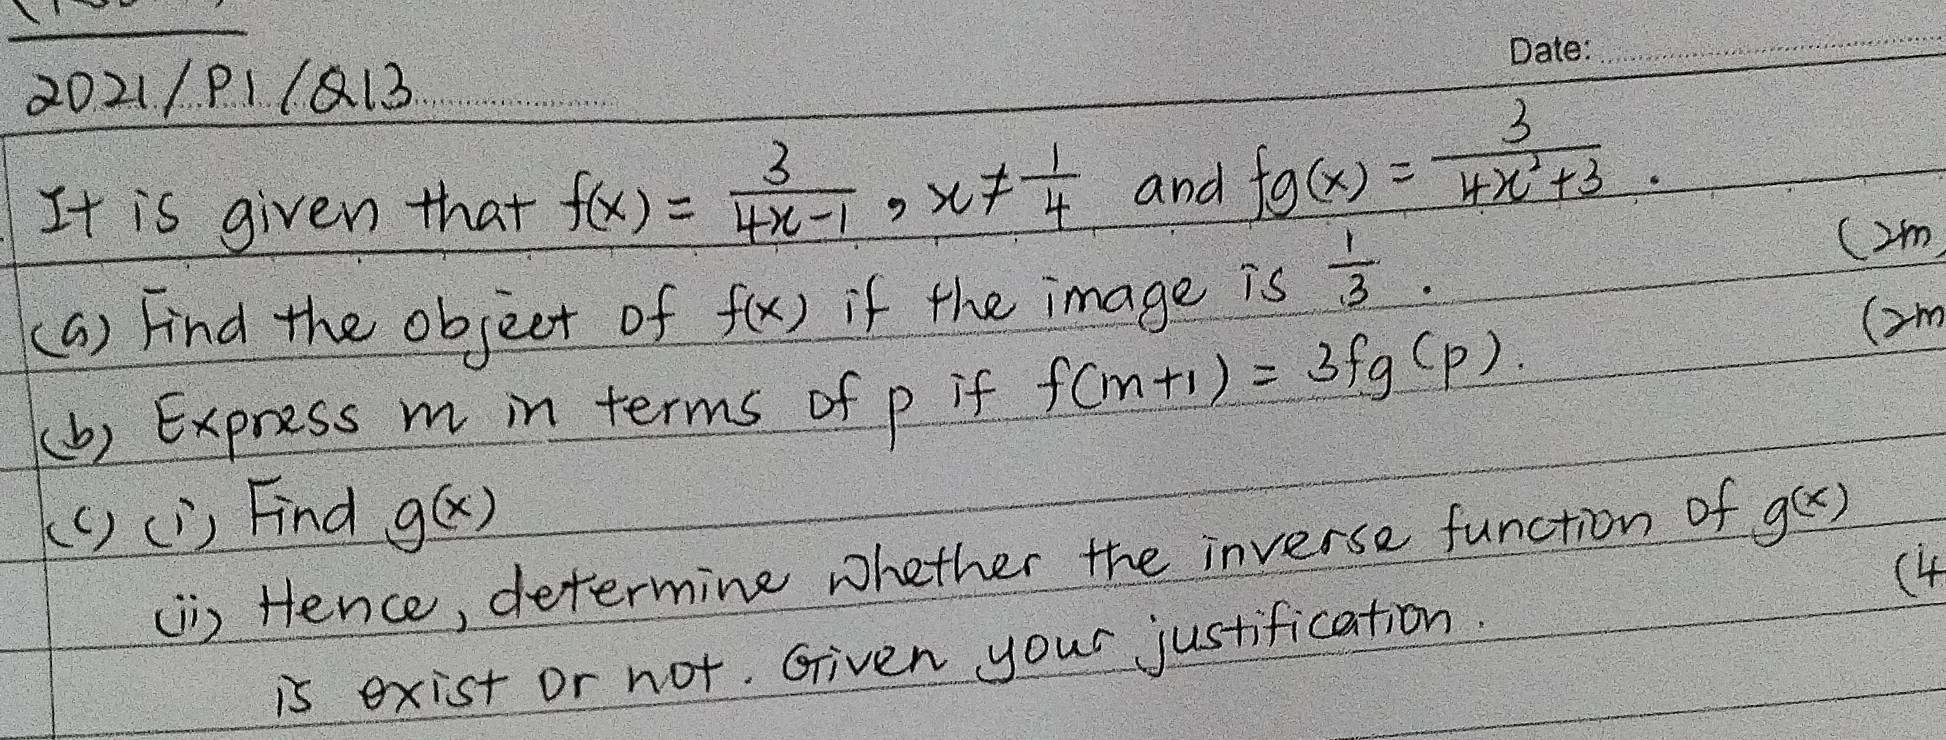 Date:
2021/P1/Q13
It is given that f(x) = 3/(4x-1), x ≠ 1/4 and fg(x) = 3/(4x²+3).
(a) Find the object of f(x) if the image is 1/3. (2m)
(b) Express m in terms of p if f(m+1) = 3fg(p). (2m
(c) (i) Find g(x)
(ii) Hence, determine whether the inverse function of g(x)
is exist or not. Given your justification. (4